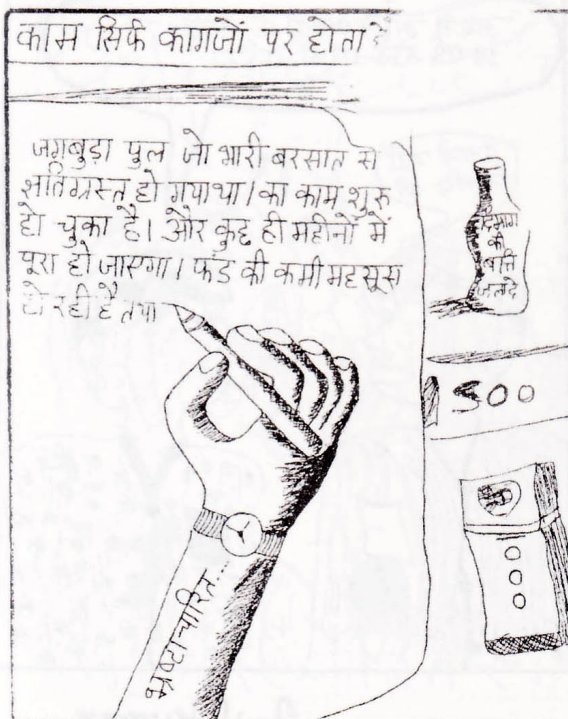 काम सिर्फ कागजों पर होता है
जगबुड़ा पुल जो भारी बरसात से
क्षतिग्रस्त हो गया था। का काम शुरू
हो चुका है। और कुछ ही महीनों में
पूरा हो जाएगा। फंड की कमी महसूस
हो रही है तथा
दिमाग
की
बत्ति
जलादे
500
भ्रष्टाचारित...